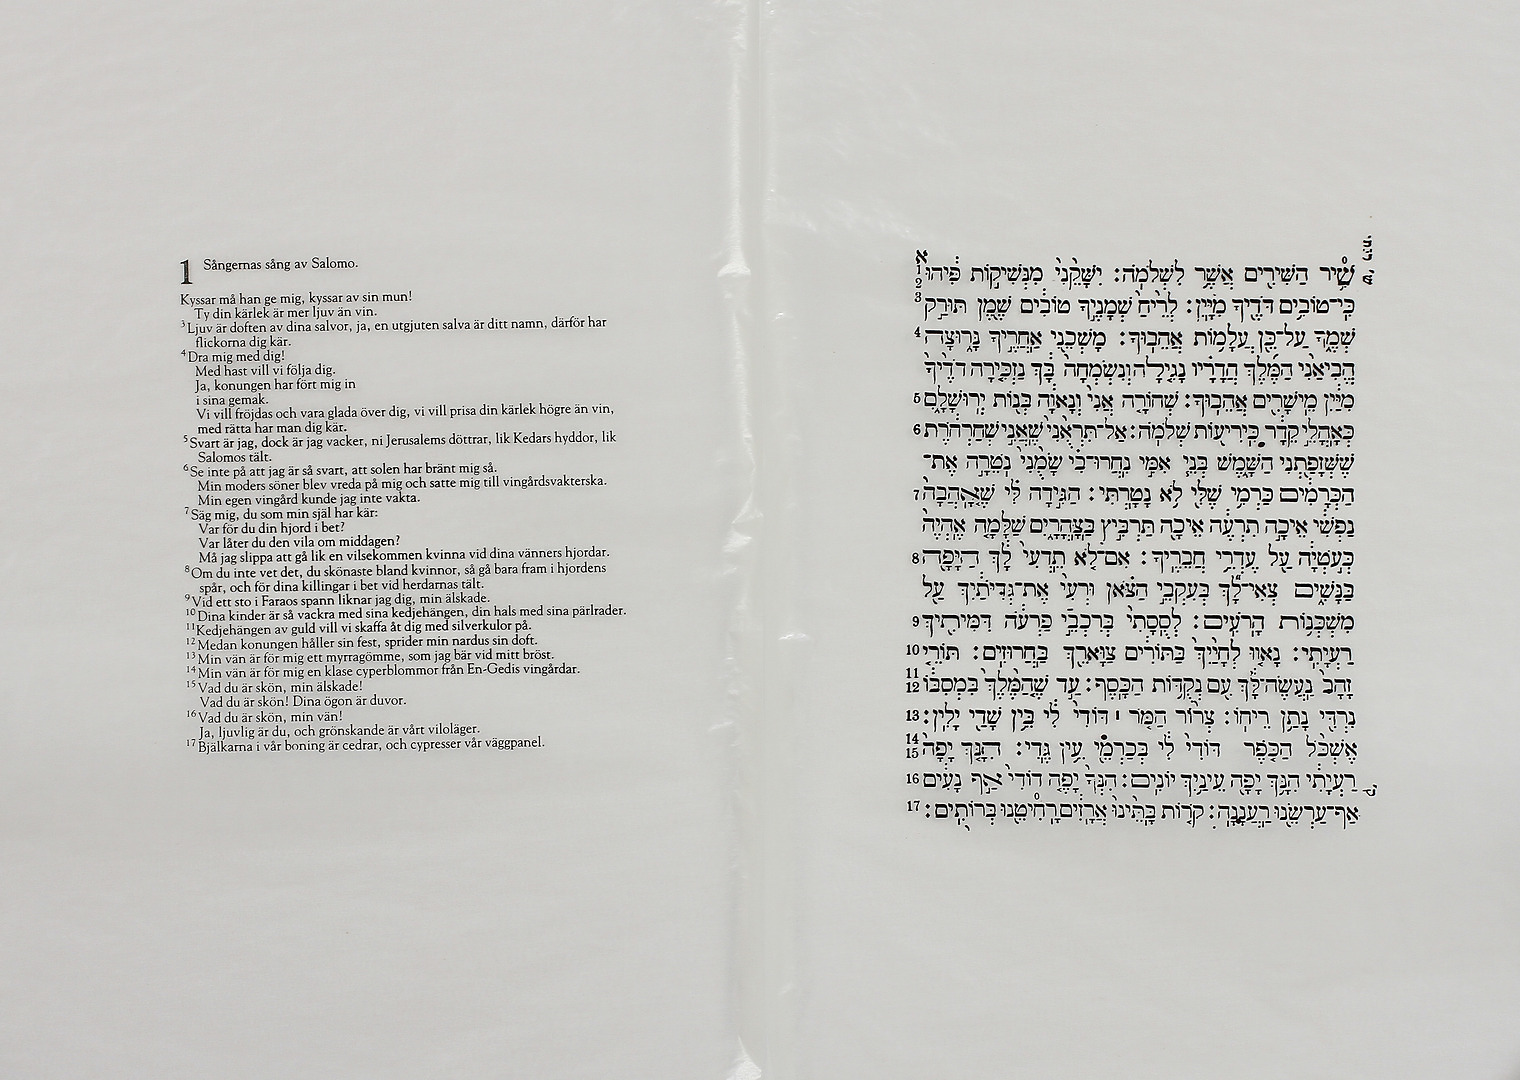 1 Sångernas sång av Salomo.
Kyssar må han ge mig, kyssar av sin mun!
Ty din kärlek är mer ljuv än vin.
3 Ljuv är doften av dina salvor, ja, en utgjuten salva är ditt namn, därför har
flickorna dig kär.
4 Dra mig med dig!
Med hast vill vi följa dig.
Ja, konungen har fört mig in
i sina gemak.
Vi vill fröjdas och vara glada över dig, vi vill prisa din kärlek högre än vin,
med rätta har man dig kär.
5 Svart är jag, dock är jag vacker, ni Jerusalems döttrar, lik Kedars hyddor, lik
Salomos tält.
6 Se inte på att jag är så svart, att solen har bränt mig så.
Min moders söner blev vreda på mig och satte mig till vingårdsvakterska.
Min egen vingård kunde jag inte vakta.
7 Säg mig, du som min själ har kär:
Var för du din hjord i bet?
Var låter du den vila om middagen?
Må jag slippa att gå lik en vilsekommen kvinna vid dina vänners hjordar.
8 Om du inte vet det, du skönaste bland kvinnor, så gå bara fram i hjordens
spår, och för dina killingar i bet vid herdarnas tält.
9 Vid ett sto i Faraos spann liknar jag dig, min älskade.
10 Dina kinder är så vackra med sina kedjehängen, din hals med sina pärlrader.
11 Kedjehängen av guld vill vi skaffa åt dig med silverkulor på.
12 Medan konungen håller sin fest, sprider min nardus sin doft.
13 Min vän är för mig ett myrragömme, som jag bär vid mitt bröst.
14 Min vän är för mig en klase cyperblommor från En-Gedis vingårdar.
15 Vad du är skön, min älskade!
Vad du är skön! Dina ögon är duvor.
16 Vad du är skön, min vän!
Ja, ljuvlig är du, och grönskande är vårt viloläger.
17 Bjälkarna i vår boning är cedrar, och cypresser vår väggpanel.
א 1 2 שִׁ֥יר הַשִּׁירִ֖ים אֲשֶׁ֥ר לִשְׁלֹמֹֽה׃ יִשָּׁקֵ֙נִי֙ מִנְּשִׁיק֣וֹת פִּ֔יהוּ
3 כִּֽי־טוֹבִ֥ים דֹּדֶ֖יךָ מִיָּֽיִן׃ לְרֵ֙יחַ֙ שְׁמָנֶ֣יךָ טוֹבִ֔ים שֶׁ֖מֶן תּוּרַ֣ק
4 שְׁמֶ֑ךָ עַל־כֵּ֖ן עֲלָמ֥וֹת אֲהֵבֽוּךָ׃ מָשְׁכֵ֖נִי אַחֲרֶ֣יךָ נָּר֑וּצָה
הֱבִיאַ֨נִי הַמֶּ֜לֶךְ חֲדָרָ֗יו נָגִ֤ילָה וְנִשְׂמְחָה֙ בָּ֔ךְ נַזְכִּ֤ירָה דֹדֶ֙יךָ֙
5 מִיַּ֔יִן מֵישָׁרִ֖ים אֲהֵבֽוּךָ׃ שְׁחוֹרָ֤ה אֲנִי֙ וְֽנָאוָ֔ה בְּנ֖וֹת יְרוּשָׁלָ֑͏ִם
6 כְּאָהֳלֵ֣י קֵדָ֔ר כִּירִיע֖וֹת שְׁלֹמֹֽה׃ אַל־תִּרְא֙וּנִי֙ שֶׁאֲנִ֣י שְׁחַרְחֹ֔רֶת
שֶׁשֱּׁזָפַ֖תְנִי הַשָּׁ֑מֶשׁ בְּנֵ֧י אִמִּ֣י נִֽחֲרוּ־בִ֗י שָׂמֻ֙נִי֙ נֹטֵרָ֣ה אֶת־
7 הַכְּרָמִ֔ים כַּרְמִ֥י שֶׁלִּ֖י לֹ֥א נָטָֽרְתִּי׃ הַגִּ֣ידָה לִּ֗י שֶׁ֤אָהֲבָה֙
נַפְשִׁ֔י אֵיכָ֣ה תִרְעֶ֔ה אֵיכָ֖ה תַּרְבִּ֣יץ בַּֽצָּהֳרָ֑יִם שַׁלָּמָ֤ה אֶֽהְיֶה֙
8 כְּעֹ֣טְיָ֔ה עַ֖ל עֶדְרֵ֥י חֲבֵרֶֽיךָ׃ אִם־לֹ֤א תֵדְעִי֙ לָ֔ךְ הַיָּפָ֖ה
בַּנָּשִׁ֑ים צְֽאִי־לָ֞ךְ בְּעִקְבֵ֣י הַצֹּ֗אן וּרְעִי֙ אֶת־גְּדִיֹּתַ֔יִךְ עַ֖ל
9 מִשְׁכְּנ֥וֹת הָרֹעִֽים׃ לְסֻסָתִי֙ בְּרִכְבֵ֣י פַרְעֹ֔ה דִּמִּיתִ֖יךְ
10 רַעְיָתִֽי׃ נָאו֤וּ לְחָיַ֙יִךְ֙ בַּתֹּרִ֔ים צַוָּארֵ֖ךְ בַּחֲרוּזִֽים׃ תּוֹרֵ֤י
11 12 זָהָב֙ נַעֲשֶׂה־לָּ֔ךְ עִ֖ם נְקֻדּ֥וֹת הַכָּֽסֶף׃ עַד־שֶׁ֤הַמֶּ֙לֶךְ֙ בִּמְסִבּ֔וֹ
13 נִרְדִּ֖י נָתַ֥ן רֵיחֽוֹ׃ צְר֨וֹר הַמֹּ֤ר ׀ דּוֹדִי֙ לִ֔י בֵּ֥ין שָׁדַ֖י יָלִֽין׃
14 15 אֶשְׁכֹּ֨ל הַכֹּ֤פֶר דּוֹדִי֙ לִ֔י בְּכַרְמֵ֖י עֵ֥ין גֶּֽדִי׃ הִנָּ֤ךְ יָפָה֙
16 רַעְיָתִ֔י הִנָּ֥ךְ יָפָ֖ה עֵינַ֥יִךְ יוֹנִֽים׃ הִנְּךָ֨ יָפֶ֤ה דוֹדִי֙ אַ֣ף נָעִ֔ים
17 אַף־עַרְשֵׂ֖נוּ רַעֲנָנָֽה׃ קֹר֤וֹת בָּתֵּ֙ינוּ֙ אֲרָזִ֔ים רַחִיטֵ֖נוּ בְּרוֹתִֽים׃